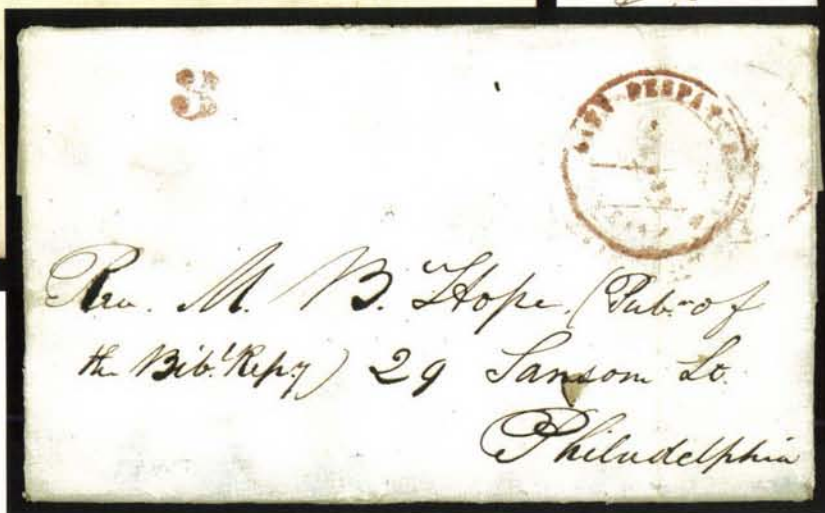 3
CITY DESPATCH
Rev. M. B. Hope. (Pubr. of
the Bibl. Repy) 29 Sansom St.
Philadelphia